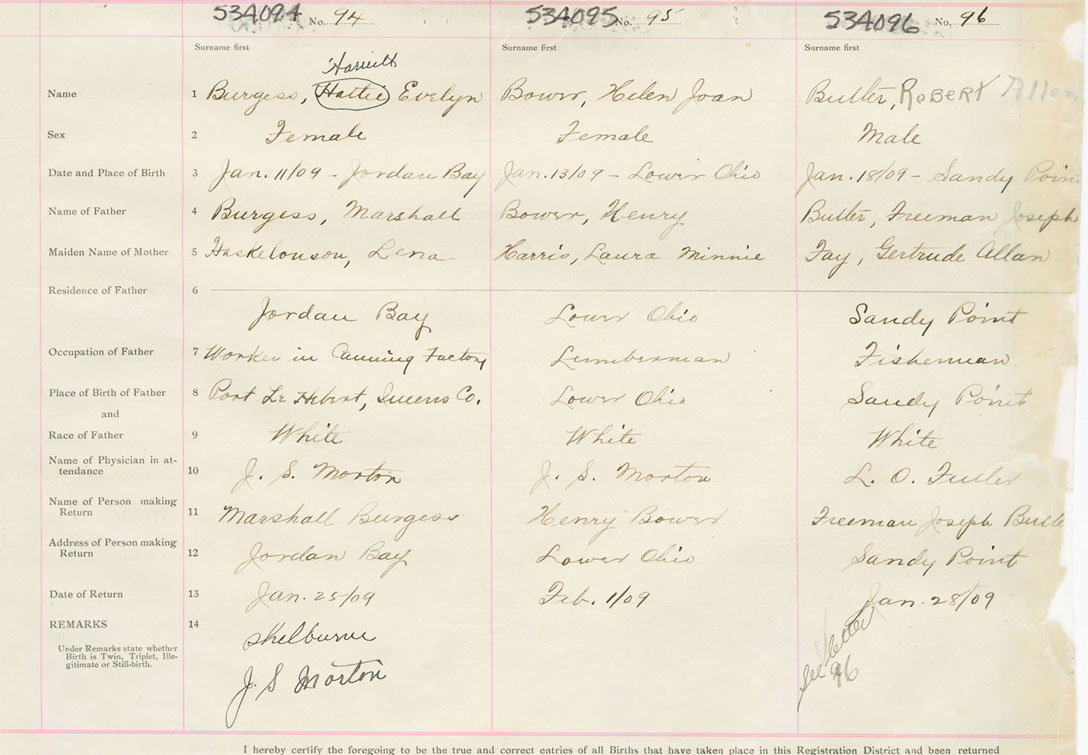 534094 No. 94 534095 No. 95 534096 No. 96
Surname first Surname first Surname first
Harriett
Name 1 Burgess, Hattie Evelyn Bower, Helen Joan Butler, Robert Allen
Sex 2 Female Female Male
Date and Place of Birth 3 Jan. 11/09 - Jordan Bay Jan. 13/09 - Lower Ohio Jan. 18/09 - Sandy Point
Name of Father 4 Burgess, Marshall Bower, Henry Butler, Freeman Joseph
Maiden Name of Mother 5 Lena Harris, Laura Minnie Fay, Gertrude Allan
Residence of Father 6
Jordan Bay Lower Ohio Sandy Point
Occupation of Father 7 Worker in Canning Factory Lumberman Fisherman
Place of Birth of Father 8 Port Le Hebert, Queens Co. Lower Ohio Sandy Point
and
Race of Father 9 White White White
Name of Physician in at-
tendance 10 J. S. Morton J. S. Morton L. O. Fuller
Name of Person making
Return 11 Marshall Burgess Henry Bower Freeman Joseph Butler
Address of Person making
Return 12 Jordan Bay Lower Ohio Sandy Point
Date of Return 13 Jan. 25/09 Feb. 1/09 Jan. 28/09
REMARKS 14 Shelburne
Under Remarks state whether
Birth is Twin, Triplet, Ille-
gitimate or Still-birth.
J. S Morton
See letter
96
I hereby certify the foregoing to be the true and correct entries of all Births that have taken place in this Registration District and been returned